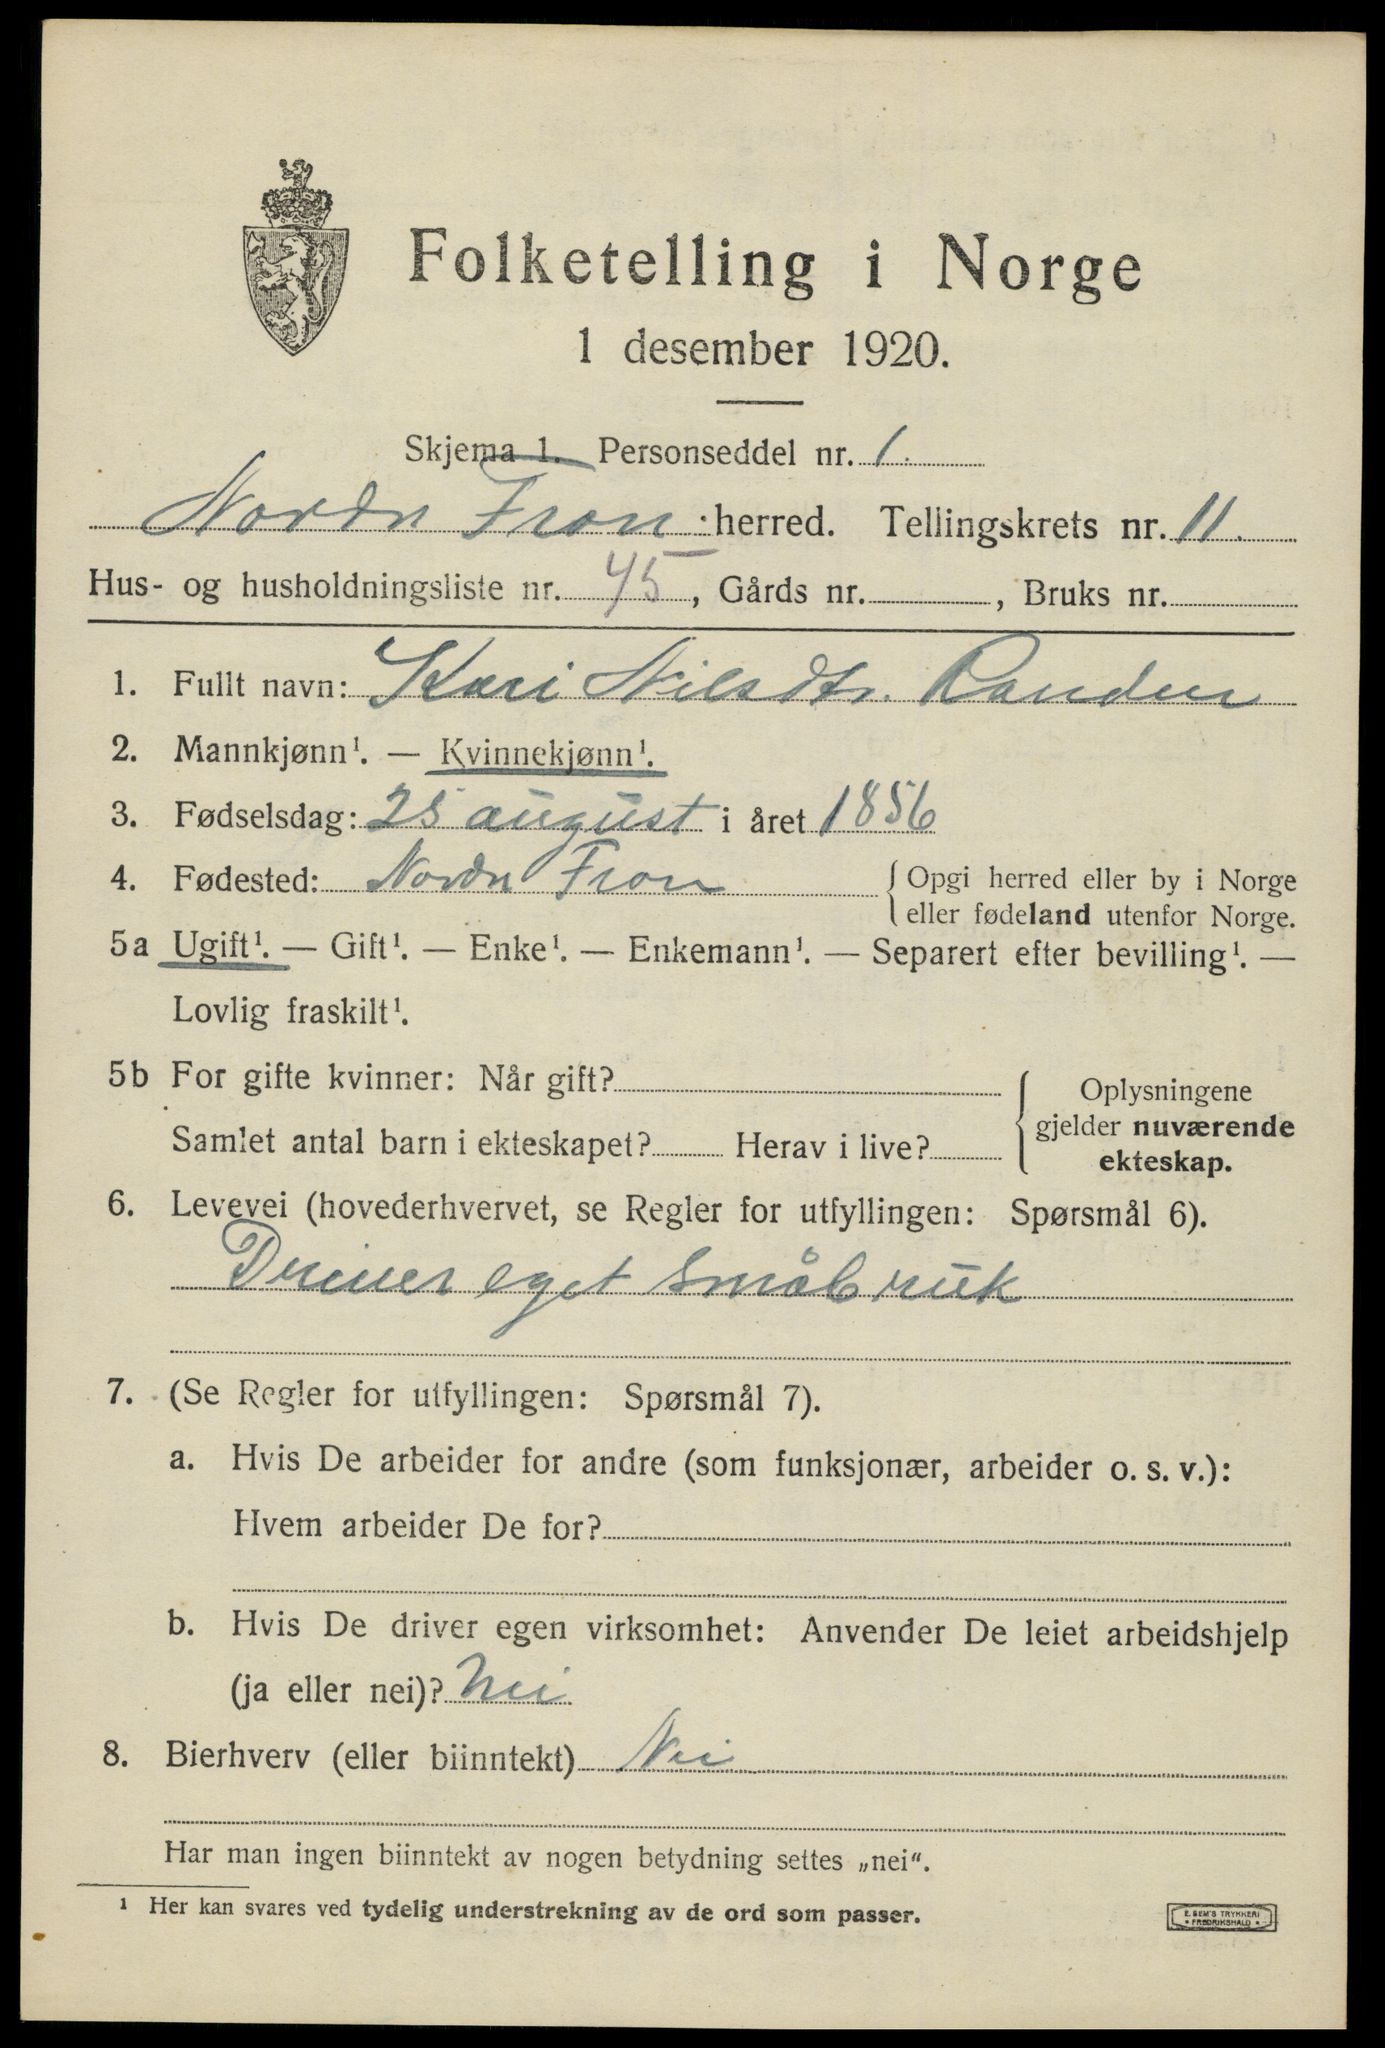 Folketelling i Norge
1 desember 1920.
Skjema 1. Personseddel nr. 1.
Nordn Fron herred. Tellingskrets nr. 11.
Hus- og husholdningsliste nr. 45, Gårds nr. , Bruks nr.
1. Fullt navn: Kari Nilsdtr. Randen
2. Mannkjønn¹. — Kvinnekjønn¹.
3. Fødselsdag: 25 august i året 1856
4. Fødested: Nordn Fron { Opgi herred eller by i Norge
eller fødeland utenfor Norge.
5a Ugift¹. — Gift¹. — Enke¹. — Enkemann¹. — Separert efter bevilling¹. —
Lovlig fraskilt¹.
5b For gifte kvinner: Når gift? { Oplysningene
gjelder nuværende
Samlet antal barn i ekteskapet? Herav i live?
ekteskap.
6. Levevei (hovederhvervet, se Regler for utfyllingen: Spørsmål 6).
Driver eget småbruk
7. (Se Regler for utfyllingen: Spørsmål 7).
a. Hvis De arbeider for andre (som funksjonær, arbeider o. s. v.):
Hvem arbeider De for?
b. Hvis De driver egen virksomhet: Anvender De leiet arbeidshjelp
(ja eller nei)? Nei
8. Bierhverv (eller biinntekt) Nei
Har man ingen biinntekt av nogen betydning settes „nei“.
¹ Her kan svares ved tydelig understrekning av de ord som passer.
E. SEM'S TRYKKERI
FREDRIKSHALD